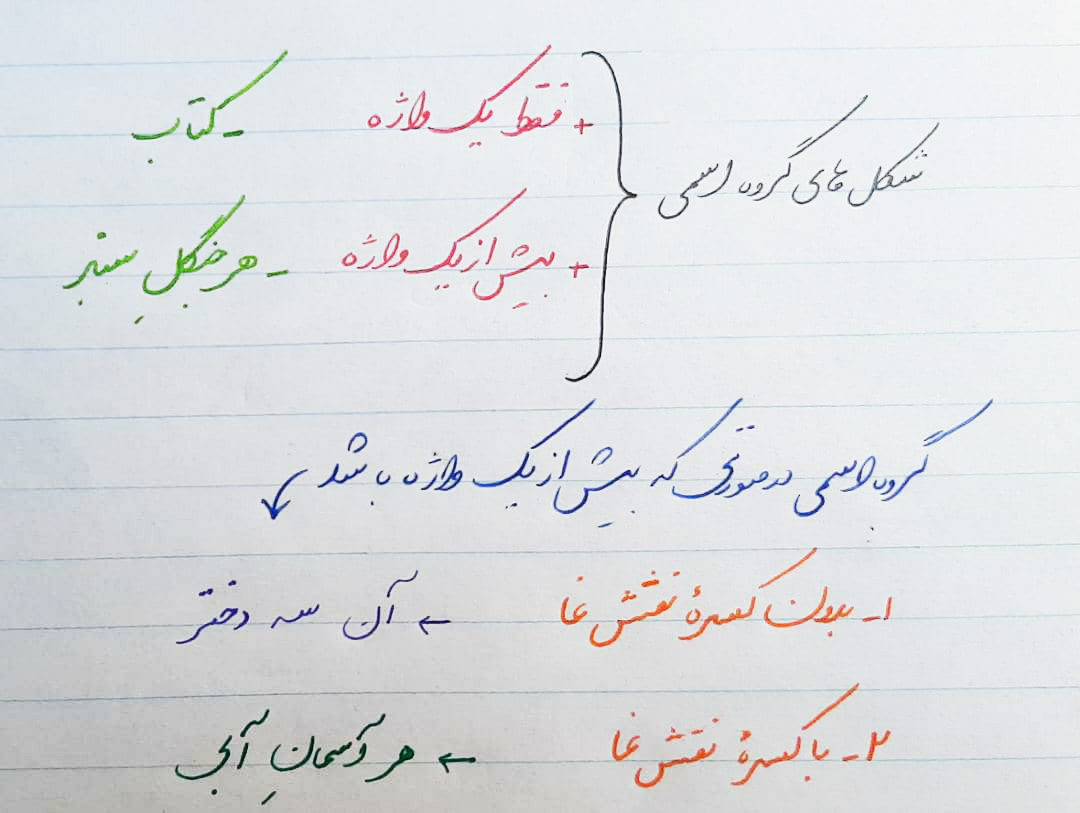 شکل های گروه اسمی
+ فقط یک واژه - کتاب
+ بیش از یک واژه - هر جنگلِ سبز
گروه اسمی در صورتی که بیش از یک واژه باشد ↙
۱- بدون کسرهٔ نقش نما ← آن سه دختر
۲- با کسرهٔ نقش نما ← هر آسمانِ آبی